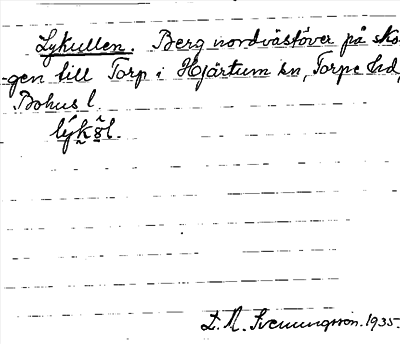 Lykullen. Berg nordvästöver på sko-
gen till Torp i Hjärtum sn, Torpe hd,
Bohus l.
D. A. Svenungsson. 1935.